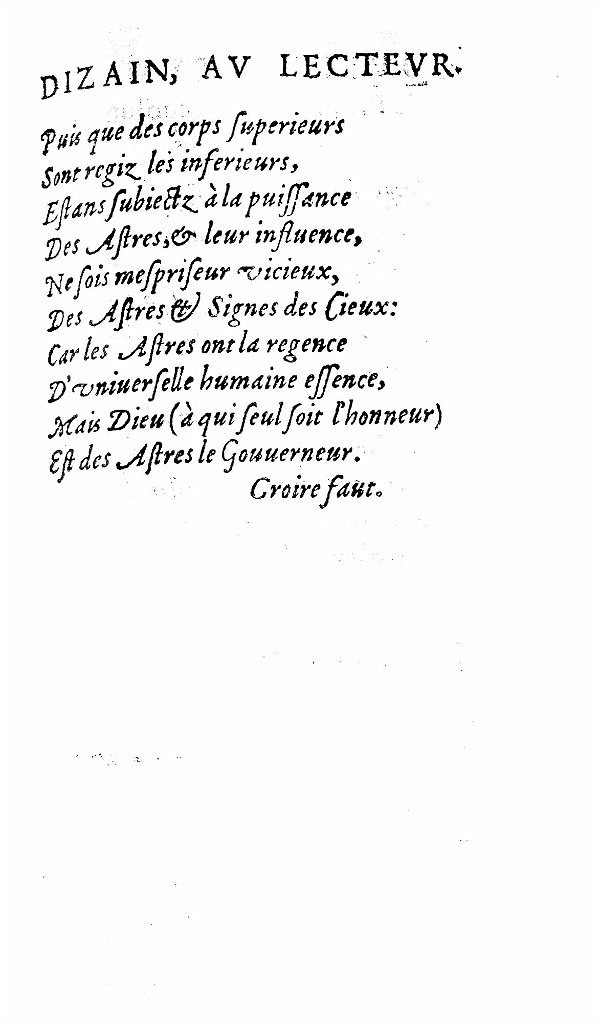 DIZAIN, AV LECTEVR.
Puis que des corps ſuperieurs
Sont regiz les inferieurs,
Eſtans ſubiectz à la puiſſance
Des Aſtres, & leur influence,
Ne ſois meſpriſeur vicieux,
Des Aſtres & Signes des Cieux:
Car les Aſtres ont la regence
D'vniuerſelle humaine eſſence,
Mais Dieu (à qui ſeul ſoit l'honneur)
Eſt des Aſtres le Gouuerneur.
Croire faut.